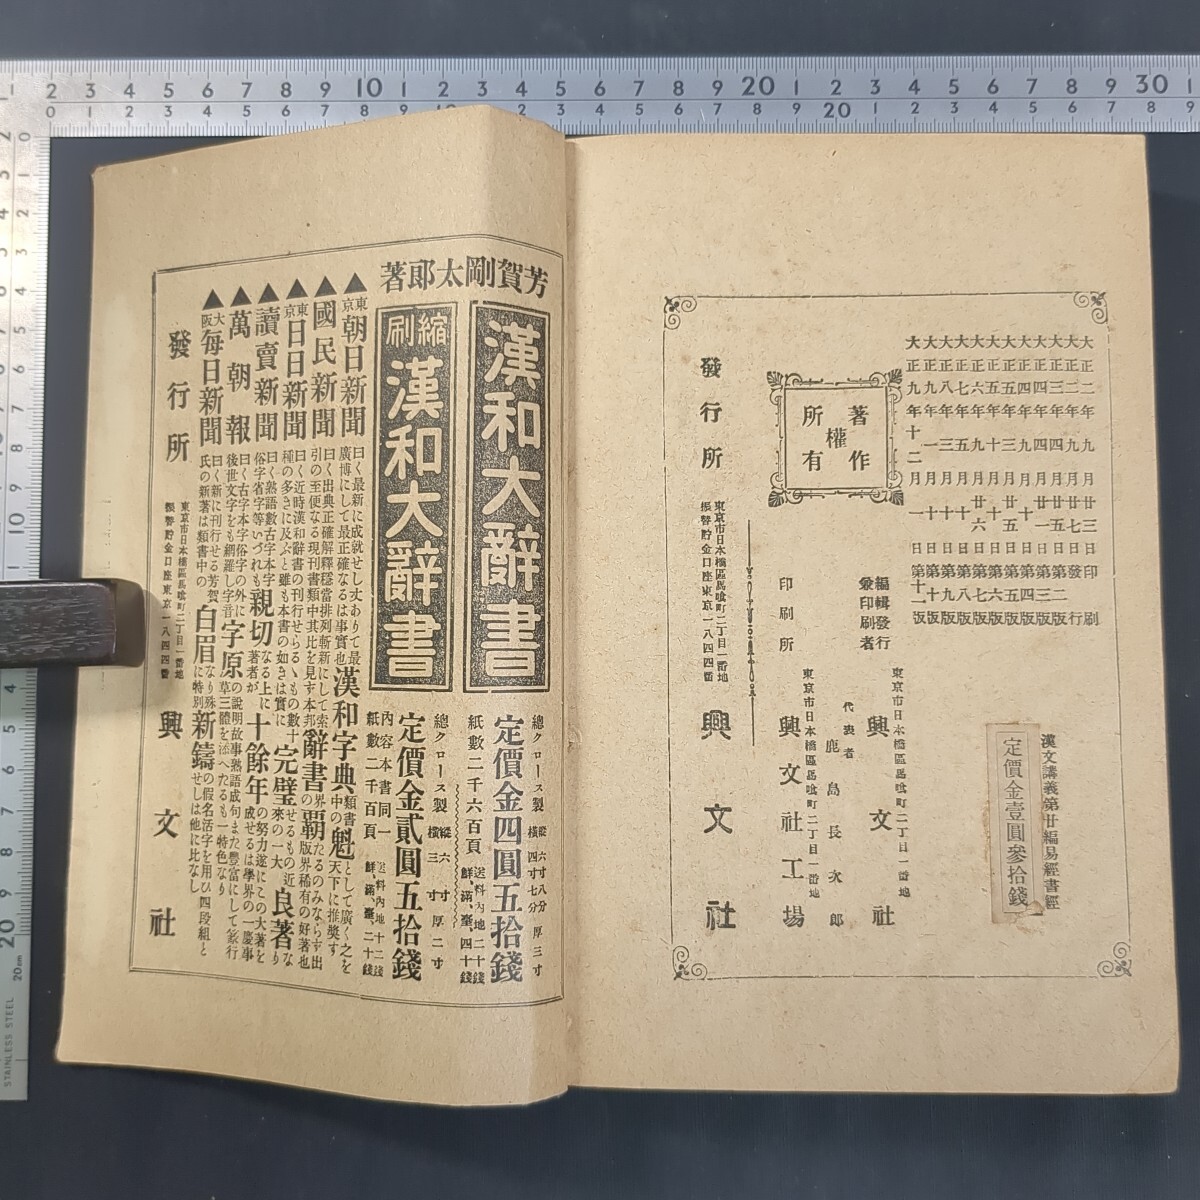 大正二年九月廿三日印刷
大正二年九月廿七日發行
大正三年四月廿五日第二版
大正四年四月廿一日第三版
大正四年九月十日第四版
大正五年三月廿五日第五版
大正五年十月十日第六版
大正六年九月廿六日第七版
大正七年五月十日第八版
大正八年三月十日第九版
大正九年一月十日第十版
大正九年十二月一日第十一版
漢文講義第廿編易經書經
定價金壹圓參拾錢
著作
權
所有
編輯發行
兼印刷者
東京市日本橋區馬喰町二丁目一番地
興文社
代表者
鹿島長次郎
印刷所
東京市日本橋區馬喰町二丁目一番地
興文社工場
發行所
東京市日本橋區馬喰町二丁目一番地
振替貯金口座東京一八四四番
興文社
芳賀剛太郎著
漢和大辭書
總クロース製
縱六寸八分
橫四寸七分
厚三寸
定價金四圓五拾錢
紙數二千六百頁
送料內地二十錢
鮮、滿、臺、四十錢
縮刷
漢和大辭書
總クロース製
縱六寸
橫三寸
厚二寸
定價金貳圓五拾錢
內容本書同一
紙數二千百頁
送料內地十二錢
鮮、滿、臺、二十錢
▲東京朝日新聞 曰く最新に成就せし丈ありて最廣博にして最正確なるは事實也漢和字典類書中の魁として廣く之を天下に推奬す
▲國民新聞 曰く出典正確解釋穩當排列斬新にして索引の至便なる現刊書類中其比を見ず本邦辭書界の覇たるのみならず出版界稀有の好著也
▲東京日日新聞 曰く近時漢和辭書の刊行せらるゝもの數十種の多きに及ぶと雖も本書の如きは實に完璧せるもの近來の一大良著なり
▲讀賣新聞 曰く熟語數古字本字俗字省字等いづれも親切なる上に著者が十餘年の努力遂にこの大著を成せるは學界の一慶事
▲萬朝報 曰く古字本字俗字の外に後世文字をも網羅し字音字原の說明故事熟語成句また豐富にして篆行草三體を添へたるも一特色なり
▲大阪每日新聞 曰く新に刊行せる芳賀氏の新著は類書中の白眉なり殊に特別新鑄の假名活字を用ひ四段組とせしは他に比なし
發行所
東京市日本橋區馬喰町二丁目一番地
振替貯金口座東京一八四四番
興文社